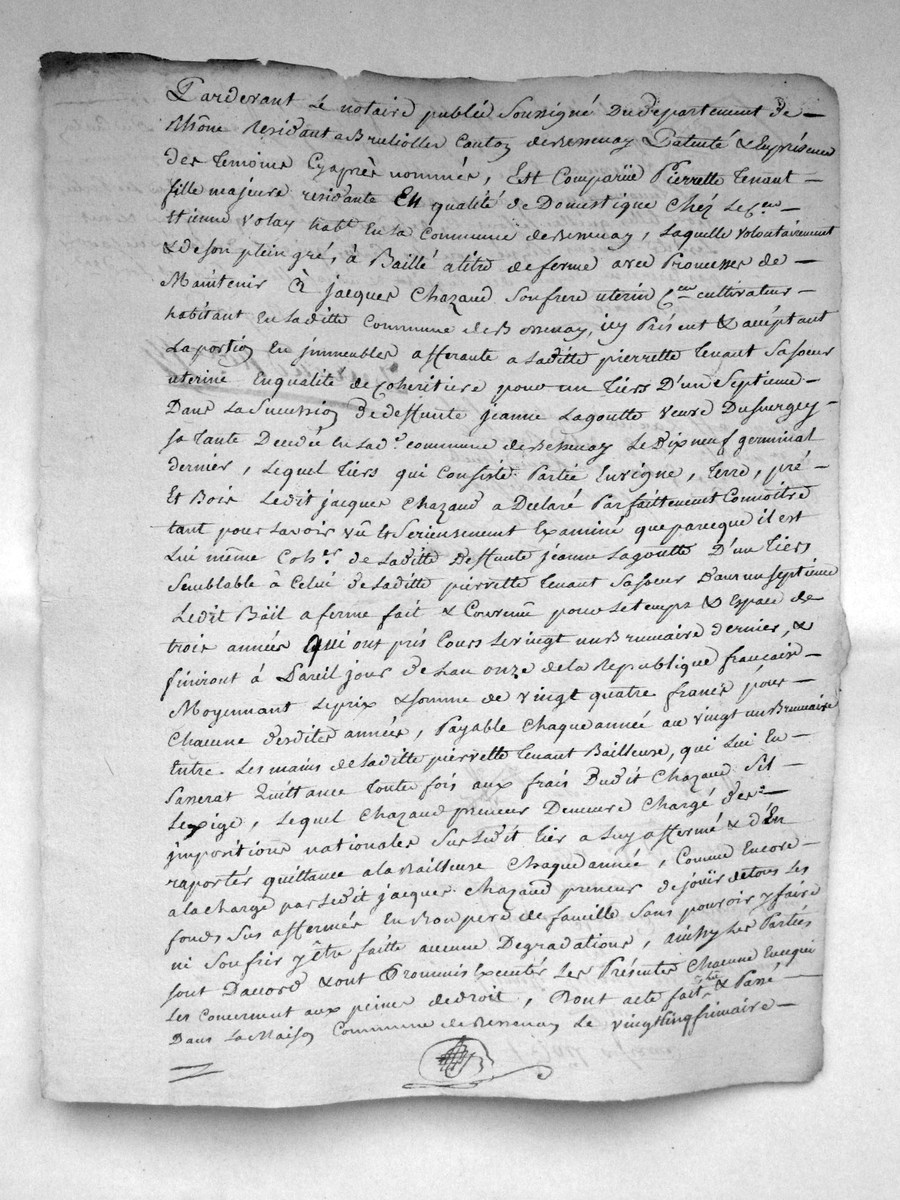 Pardevant Le notaire public Soussigné Du Departement de
Rhône Residant a Brulliolles Canton de Bessenay Patenté & En présence
des temoins Cyaprès nommés, Est Comparüe Pierrette tenaut
fille majeure residante En qualité de Domestique Chéz Le Cen
Etienne Volay habt En La Commune de Bessenay, Laquelle volontairement
& de son plein gré, à Baillé a titre de ferme avec Promesses de
Maintenir à jacques Chazaud Son frere uterin Cen cultivateur
habitant En Laditte Commune de Bessenay, icy Présent & acceptant
La portion En jmmeubles afferante a Laditte pierrette tenaut Sa soeur
uterine En qualité de Coheritiere pour un tiers D'un Septieme
Dans La Sucession de deffunte jeanne Lagoutte veuve Dufurgey
sa tante Decedée En Lade commune de Bessenay Le Dix neuf germinal
dernier, Lequel tiers qui Consiste Partie En vigne, terre, pré
Et Bois Ledit jacques Chazaud a Declaré Parfaitement Connoitre
tant pour L'avoir vû & Serieusement Examiné que parceque il est
Lui même Coher de Laditte Deffunte jeanne Lagoutte D'un tiers
Semblable à Celui de Laditte pierrette tenaut Sa soeur Dans un septieme
Ledit Bail a ferme fait & Convenu pour Le temps & Espace de
trois années qui ont pris Cours Le vingt un Brumaire dernier, &
finiront à Pareil jour de L'an onze de la Republique francaise
Moyennant Le prix & somme de vingt quatre francs pour
Chacune desdites années, Payable Chaque année au vingt un Brumaire
Entre Les mains de Laditte pierrette tenaut Bailleuse, qui Lui En
Passerat Quittance toute fois aux frais Dudit Chazaud S'il
L'exige, Lequel Chazaud preneur Demeure Chargé des
jmpositions nationales Sur Ledit tier a Luy affermé & d'En
raporter quittance a la Bailleuse Chaque année, Comme Encore
a la Charge par Ledit jacques Chazaud preneur de joüir de tous Les
fonds Sus affermés En Bon pere de famille Sans pouvoir y faire
ni Soufrir y être faitte aucune Degradations, ainsy Les Parties
sont D'accord & ont Promis Executer Les Présentes Chacune En ce qui
Les Concernent aux peines de droit, Dont acte fait & Passé
Dans La Maison Commune de Bessenay Le vingt cinq frimaire